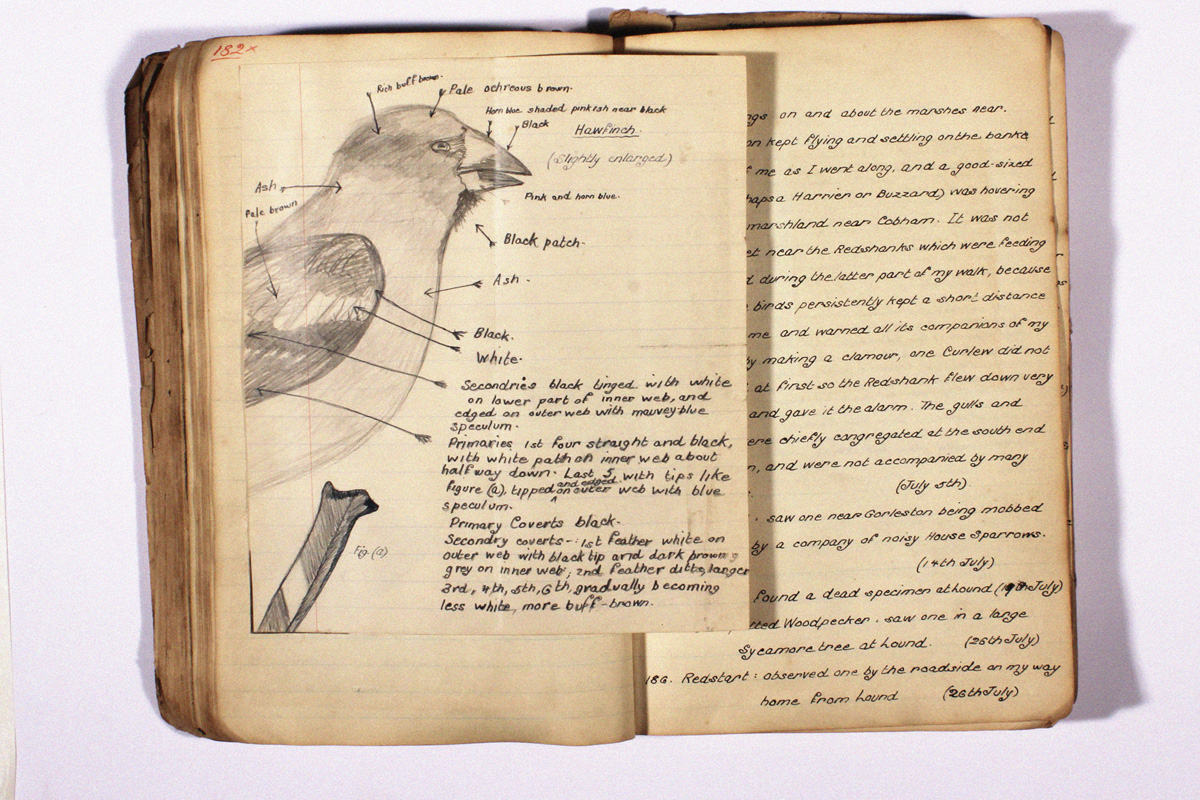 182x
Rich buff brown.
Pale ochreous brown.
Horn blue shaded pinkish near black
Black
Hawfinch.
(Slightly enlarged)
Ash
Pink and horn blue.
Pale brown
Black patch.
Ash.
Black.
White.
Secondries black tinged with white
on lower part of inner web, and
edged on outer web with mauvey blue
speculum.
Primaries 1st four straight and black,
with white patch on inner web about
half way down. Last 5, with tips like
and edged
figure (a), tipped on outer web with blue
speculum.
Primary Coverts black.
Secondry coverts-: 1st feather white on
outer web with black tip and dark brown
grey on inner web; 2nd feather ditto, larger
3rd, 4th, 5th, 6th, gradually becoming
less white, more buff-brown.
Fig. (a)
on and about the marshes near.
kept flying and settling on the banks
me as I went along, and a good-sized
a Harrier or Buzzard) was hovering
marshland near Cobham. It was not
near the Redshanks which were feeding
during the latter part of my walk, because
birds persistently kept a short distance
me and warned all its companions of my
by making a clamour, one Curlew did not
at first so the Redshank flew down very
and gave it the alarm. The gulls and
chiefly congregated at the south end
and were not accompanied by many
(July 5th)
saw one near Gorleston being mobbed
by a company of noisy House Sparrows.
(14th July)
found a dead specimen at Lound July)
Woodpecker. saw one in a large
Sycamore tree at Lound. (26th July)
186. Redstart: observed one by the roadside on my way
home from Lound (26th July)